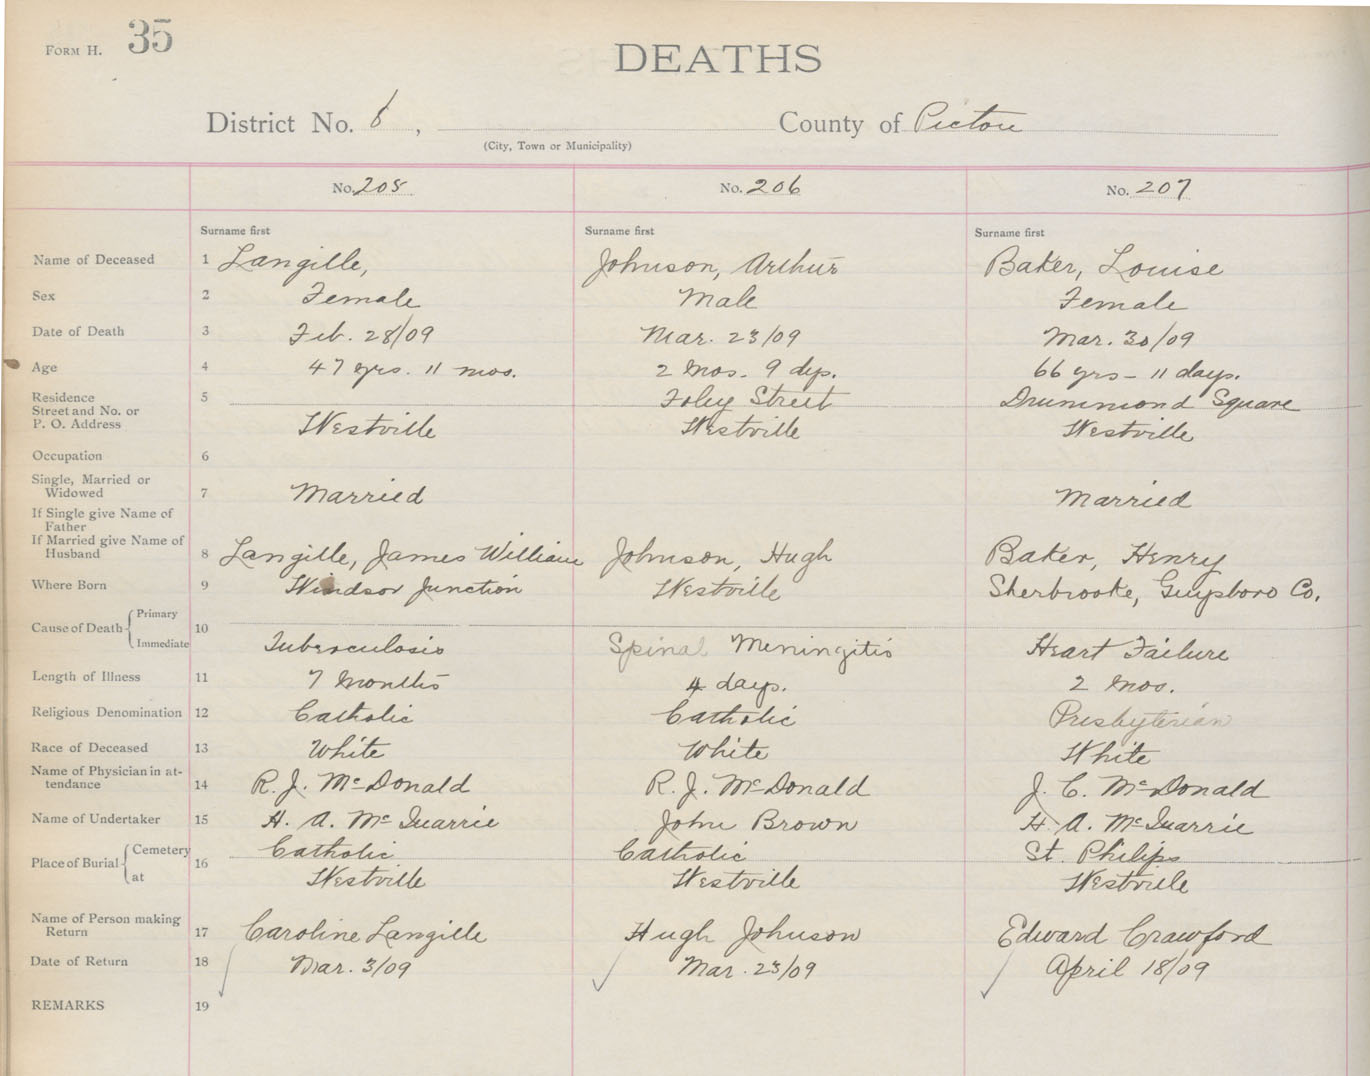 FORM H. 35
DEATHS
District No. 6, County of Pictou
(City, Town or Municipality)
No. 205 No. 206 No. 207
Surname first Surname first Surname first
Name of Deceased 1 Langille, Johnson, Arthur Baker, Louise
Sex 2 Female Male Female
Date of Death 3 Feb. 28/09 Mar. 23/09 Mar. 30/09
Age 4 47 yrs. 11 mos. 2 mos. 9 dys. 66 yrs - 11 days.
Residence 5 Foley Street Drummond Square
Street and No. or
P. O. Address Westville Westville Westville
Occupation 6
Single, Married or
Widowed 7 Married Married
If Single give Name of
Father
If Married give Name of
Husband 8 Langille, James William Johnson, Hugh Baker, Henry
Where Born 9 Windsor Junction Westville Sherbrooke, Guysboro Co.
Cause of Death { Primary 10
Immediate Tuberculosis Spinal Meningitis Heart Failure
Length of Illness 11 7 months 4 days. 2 mos.
Religious Denomination 12 Catholic Catholic Presbyterian
Race of Deceased 13 White White White
Name of Physician in at-
tendance 14 R. J. McDonald R. J. McDonald J. C. McDonald
Name of Undertaker 15 H. A. McQuarrie John Brown H. A. McQuarrie
Place of Burial { Cemetery 16 Catholic Catholic St. Philips
at Westville Westville Westville
Name of Person making
Return 17 Caroline Langille Hugh Johnson Edward Crawford
Date of Return 18 Mar. 3/09 Mar. 23/09 April 18/09
REMARKS 19